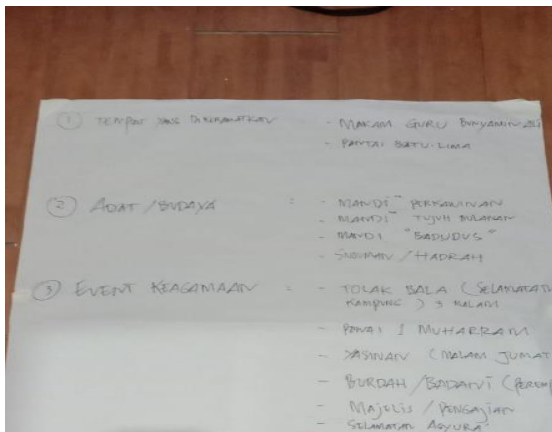 ① TEMPAT YANG DIKERAMATKAN - MAKAM GURU BUNYAMIN ALI
- PANTAI BATU LIMA
② ADAT / BUDAYA : - MANDI" PERKAWINAN
- MANDI" TUJUH BULANAN
- MANDI "BADUDUS"
- SINOMAN / HADRAH
③ EVENT KEAGAMAAN = - TOLAK BALA (SELAMATAN
KAMPUNG) 3 MALAM
- PAWAI 1 MUHARRAM
- YASINAN (MALAM JUMAT
- BURDAH /
- MAJELIS / PENGAJIAN
- SELAMATAN ASYURA